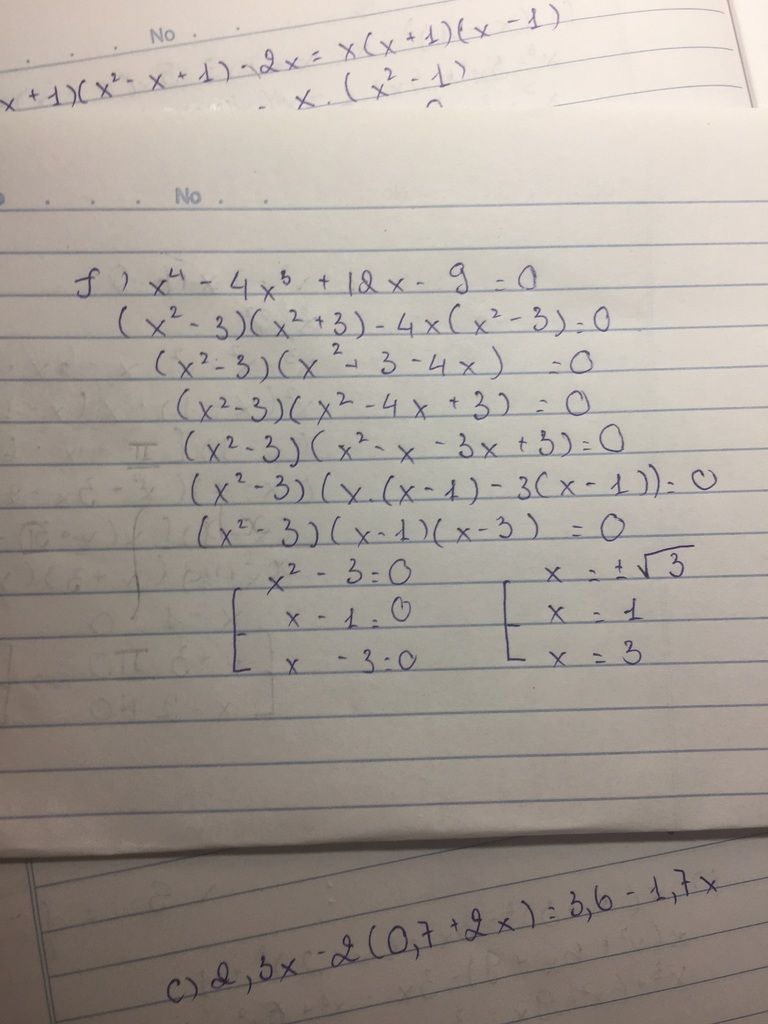 No
x + 1)(x² - x + 1) - 2x = x(x + 1)(x - 1)
x . (x² - 1)
No
f) x⁴ - 4x³ + 12x - 9 = 0
(x² - 3)(x² + 3) - 4x(x² - 3) = 0
(x² - 3)(x² + 3 - 4x) = 0
(x² - 3)(x² - 4x + 3) = 0
(x² - 3)(x² - x - 3x + 3) = 0
(x² - 3)(x.(x - 1) - 3(x - 1)) = 0
(x² - 3)(x - 1)(x - 3) = 0
x² - 3 = 0 x = ±√3
x - 1 = 0 x = 1
x - 3 = 0 x = 3
c) 2,3x - 2(0,7 + 2x) = 3,6 - 1,7x